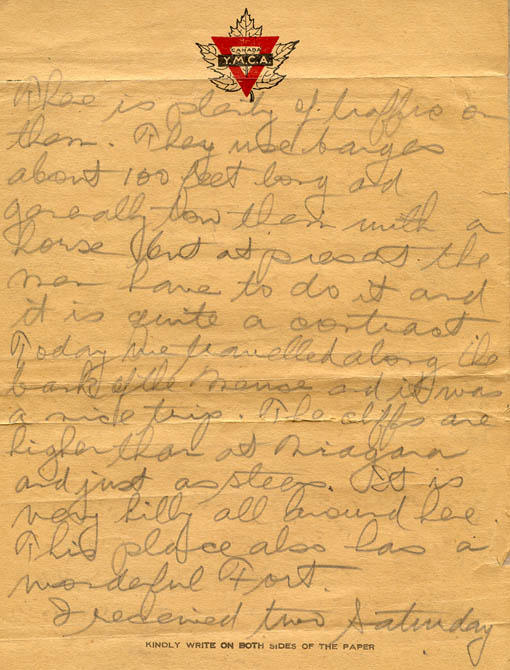 CANADA
Y.M.C.A.
There is plenty of traffic on
them. They use barges
about 100 feet long and
generally tow them with a
horse but at present the
men have to do it and
it is quite a contract.
Today we travelled along the
bank of the Meuse and it was
a nice trip. The cliffs are
higher than at Niagara
and just as steep. It is
very hilly all around here.
This place also has a
wonderful Fort.
I received two Saturday
KINDLY WRITE ON BOTH SIDES OF THE PAPER